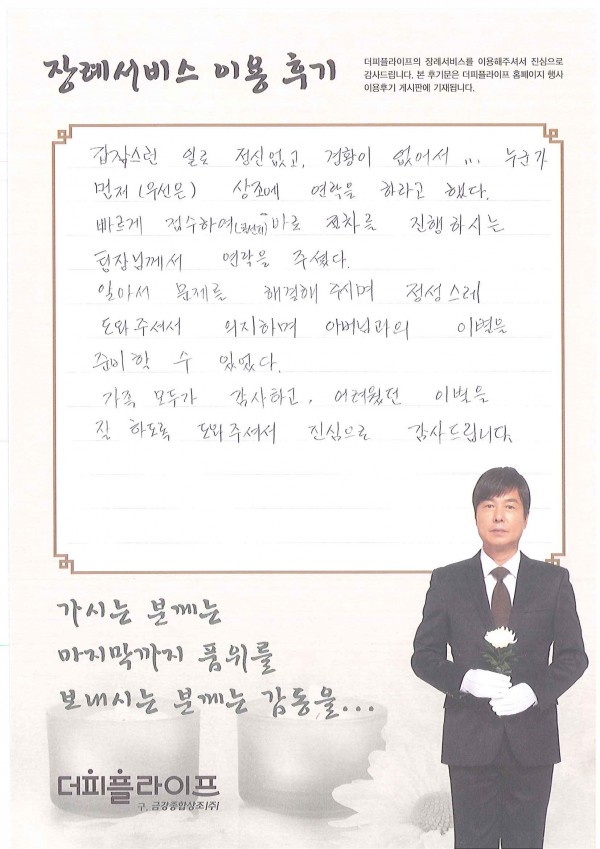 장례서비스 이용 후기
더피플라이프의 장례서비스를 이용해주셔서 진심으로
감사드립니다. 본 후기문은 더피플라이프 홈페이지 행사
이용후기 게시판에 기재됩니다.
갑작스런 일로 정신없고, 경황이 없어서 ... 누군가
먼저 (우선은) 상조에 연락을 하라고 했다.
빠르게 접수하여 바로 절차를 진행하시는
팀장님께서 연락을 주셨다.
알아서 문제를 해결해 주시며 정성스레
도와주셔서 의지하며 아버님과의 이별을
준비할 수 있었다.
가족 모두가 감사하고, 어려웠던 이별을
잘 하도록 도와주셔서 진심으로 감사드립니다.
가시는 분께는
마지막까지 품위를
보내시는 분께는 감동을...
더피플라이프
구. 금강종합상조(주)